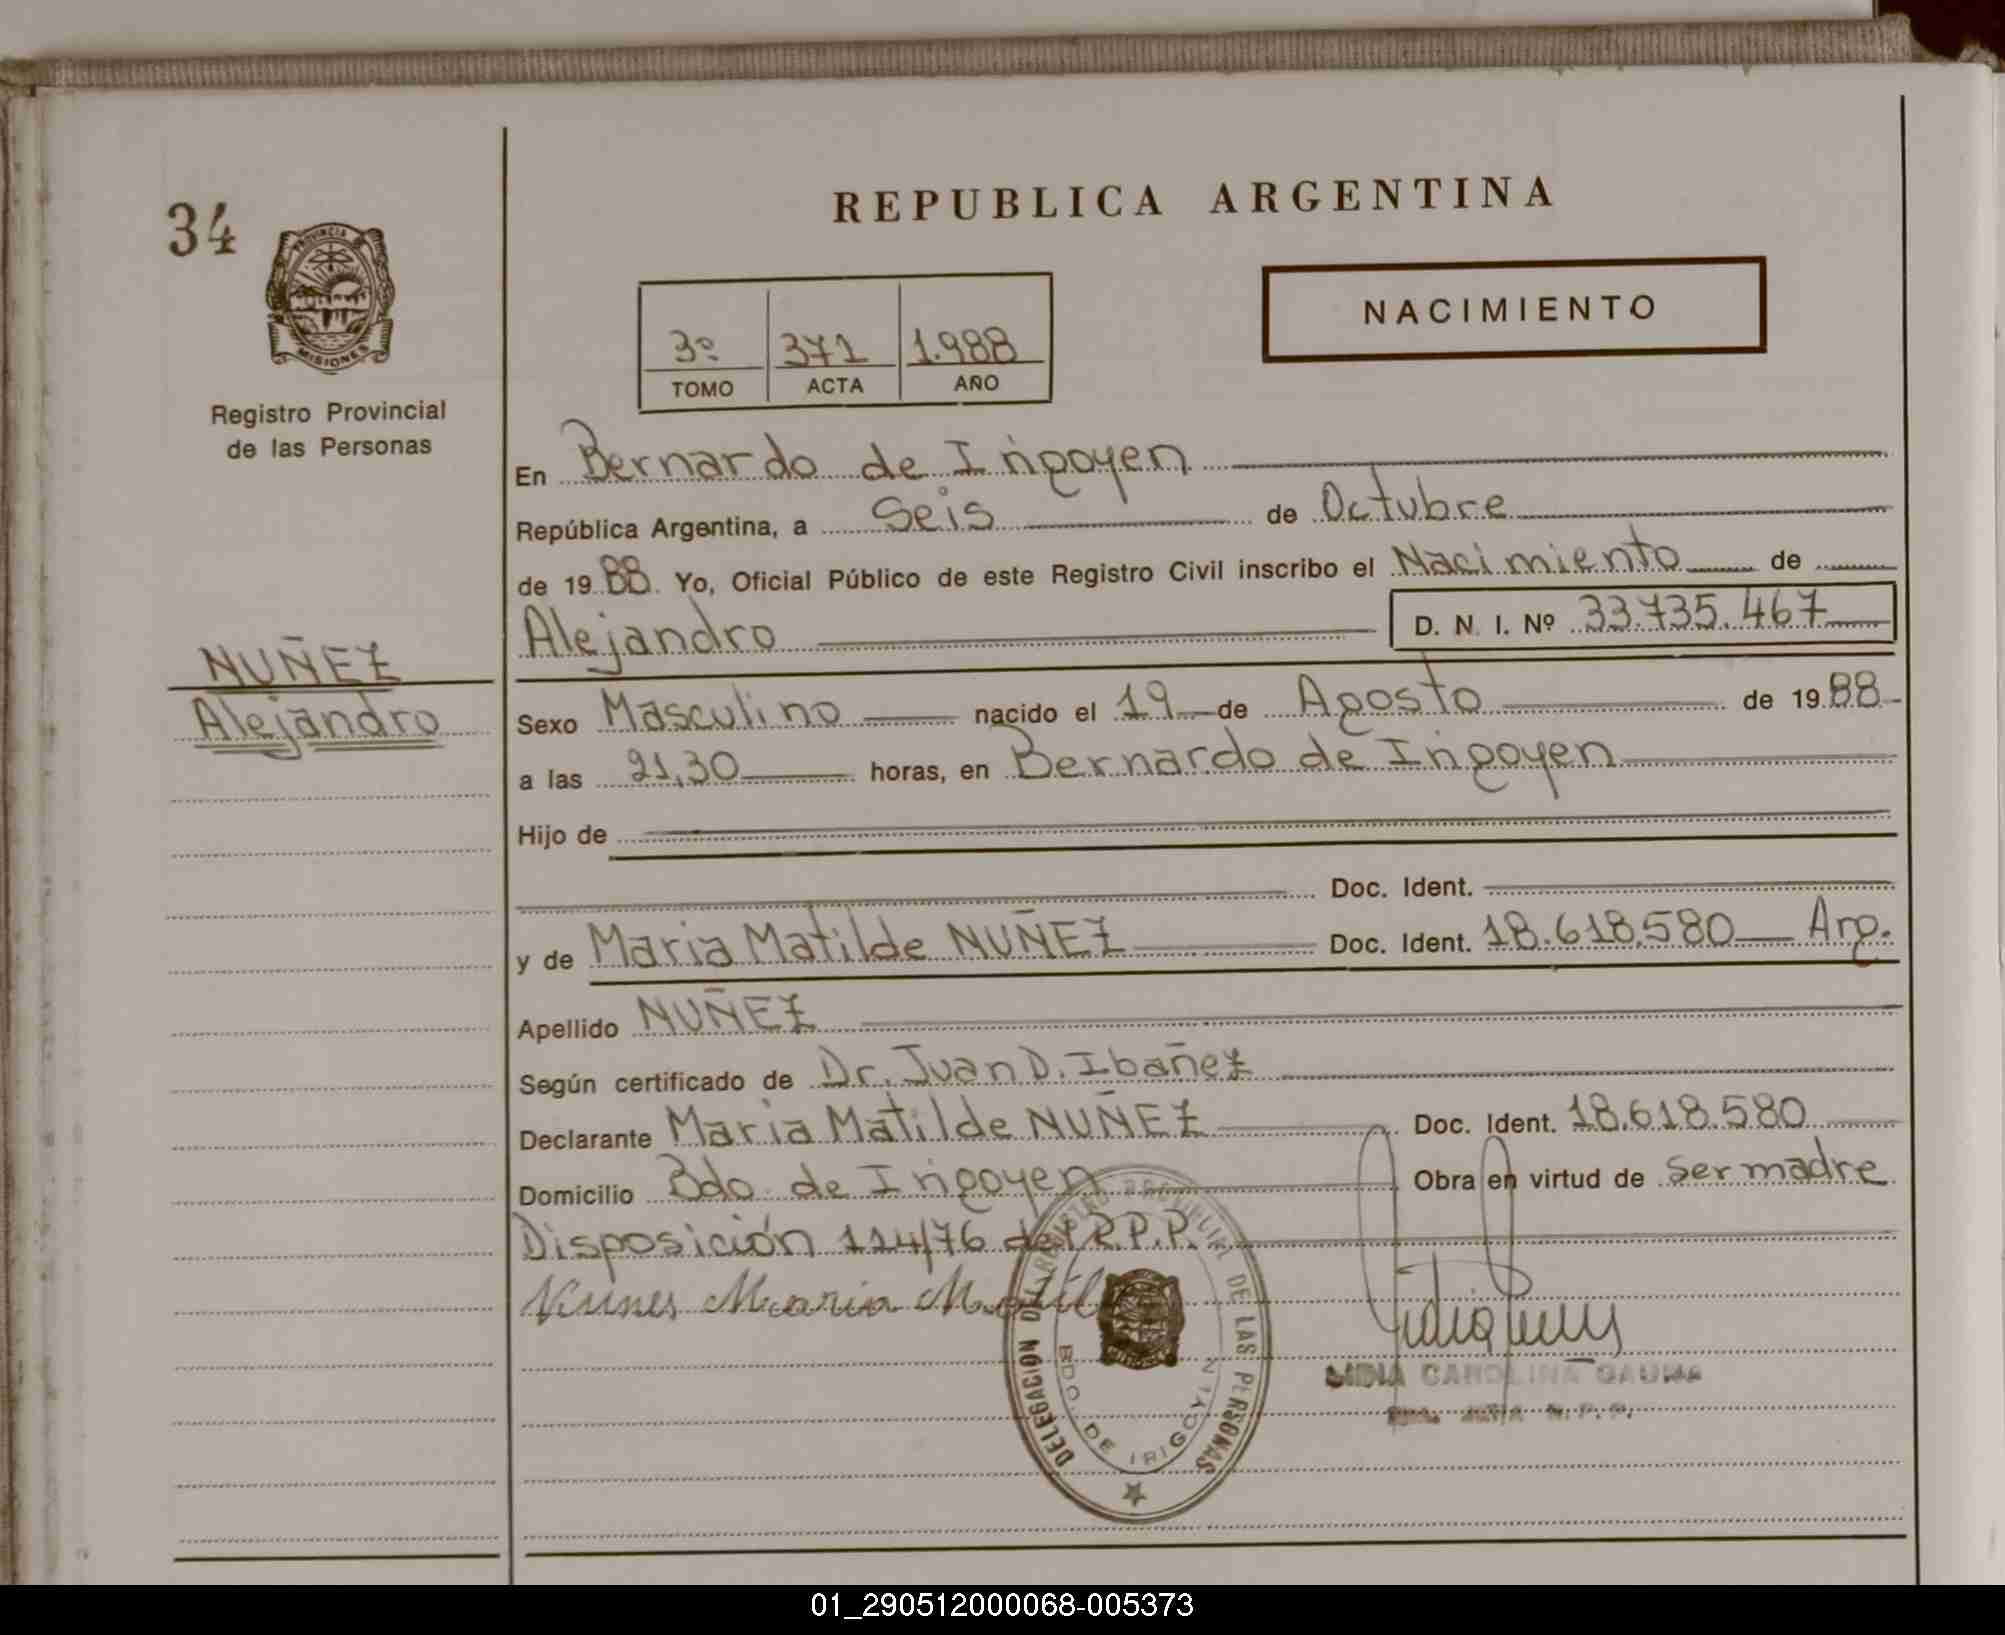 34
PROVINCIA
MISIONES
Registro Provincial
de las Personas
NUÑEZ
Alejandro
REPUBLICA ARGENTINA
NACIMIENTO
3º 371 1.988
TOMO ACTA AÑO
En Bernardo de Irigoyen
República Argentina, a Seis de Octubre
de 19 88. Yo, Oficial Público de este Registro Civil inscribo el Nacimiento de
Alejandro D. N. I. Nº 33.735.467
Sexo Masculino nacido el 19 de Agosto de 19 88
a las 21,30 horas, en Bernardo de Irigoyen
Hijo de
Doc. Ident.
y de Maria Matilde NUÑEZ Doc. Ident. 18.618.580 Arg.
Apellido NUÑEZ
Según certificado de Dr. Juan D. Ibañez
Declarante Maria Matilde NUÑEZ Doc. Ident. 18.618.580
Domicilio Bdo. de Irigoyen Obra en virtud de ser madre
Disposición 114/76 del R.P.P.
Nunes Maria Matil
DELEGACIÓN DEL REGISTRO PROVINCIAL DE LAS PERSONAS
BDO. DE IRIGOYEN
CAROLINA GAUNA
R.P.P.
01_290512000068-005373